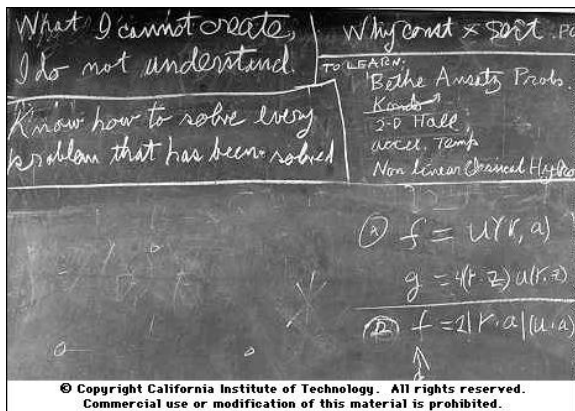 What I cannot create,
I do not understand.
Know how to solve every
problem that has been solved
Why const × sort . PO
TO LEARN:
Bethe Ansatz Probs.
Kondo
2-D Hall
accel. Temp
Non linear Classical Hydro
Ⓐ f = u(r, a)
g = 4(r·z) u(r, z)
Ⓑ f = 2|r·a|(u·a)
© Copyright California Institute of Technology. All rights reserved.
Commercial use or modification of this material is prohibited.